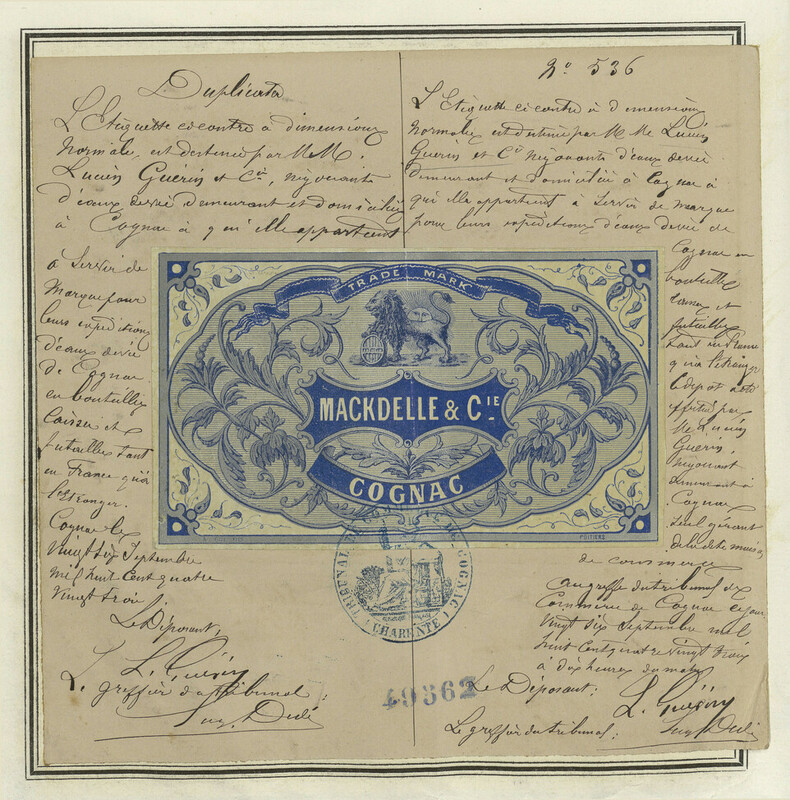 Duplicata
L'Etiquette ci contre à dimensions
normale, est destinée par M M.
Lucien Guérin et Cie, négociants
d'eaux de vie demeurant et domiciliés
à Cognac à qui elle appartient
à servir de
marque pour
leurs expéditions
d'eaux de vie
de Cognac
en bouteilles
caisses et
futailles tant
en France qu'à
l'Etranger.
Cognac le
vingt six Septembre
mil huit cent quatre
vingt trois
Le Déposant,
L. Guérin
Le greffier du tribunal:
No 536
L'Etiquette ci contre à dimensions
normales est destinée par M Me Lucien
Guérin et Cie négociants d'eaux de vie
demeurant et domiciliés à Cognac à
qui elle appartient à servir de marque
pour leurs expéditions d'eaux de vie de
Cognac en
bouteilles
caisses et
futailles
tant en France
qu'à l'étranger
Dépôt a été
effectué par
Me Lucien
Guérin,
négociant
demeurant à
Cognac
seul gérant
de la dite maison
de commerce
au greffe du tribunal de
Commerce de Cognac ce jour
vingt six Septembre mil
huit cent quatre vingt trois
à dix heures du matin
Le Déposant:
L. Guérin
Le greffier du tribunal:
TRADE MARK
MACKDELLE & CIE
COGNAC
POITIERS
TRIBUNAL DE COMMERCE DE COGNAC
(CHARENTE)
49362